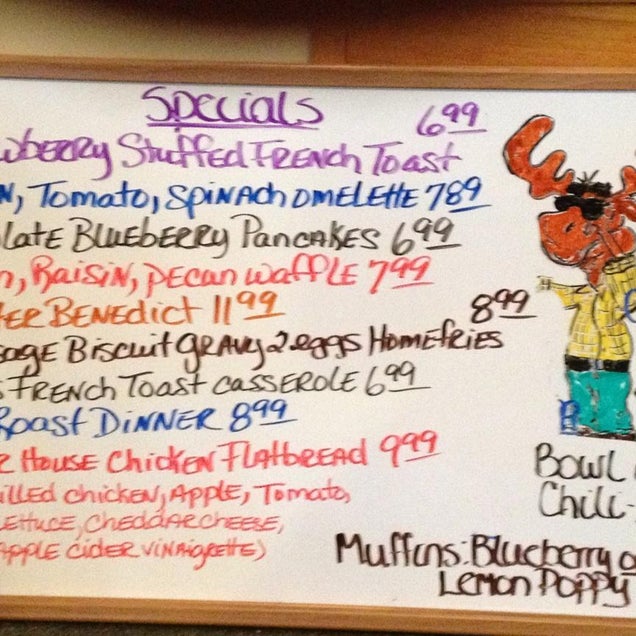 Specials
6.99
wberry Stuffed French Toast
N, Tomato, Spinach Omelette 7.89
late Blueberry Pancakes 6.99
n, Raisin, Pecan Waffle 7.99
ter Benedict 11.99
8.99
sage Biscuit Gravy 2 eggs Homefries
s French Toast Casserole 6.99
Roast Dinner 8.99
r House Chicken Flatbread 9.99
illed chicken, Apple, Tomato,
ettuce, cheddar cheese,
Apple cider vinaigrette)
Bowl
Chili-
Muffins: Blueberry o
Lemon Poppy